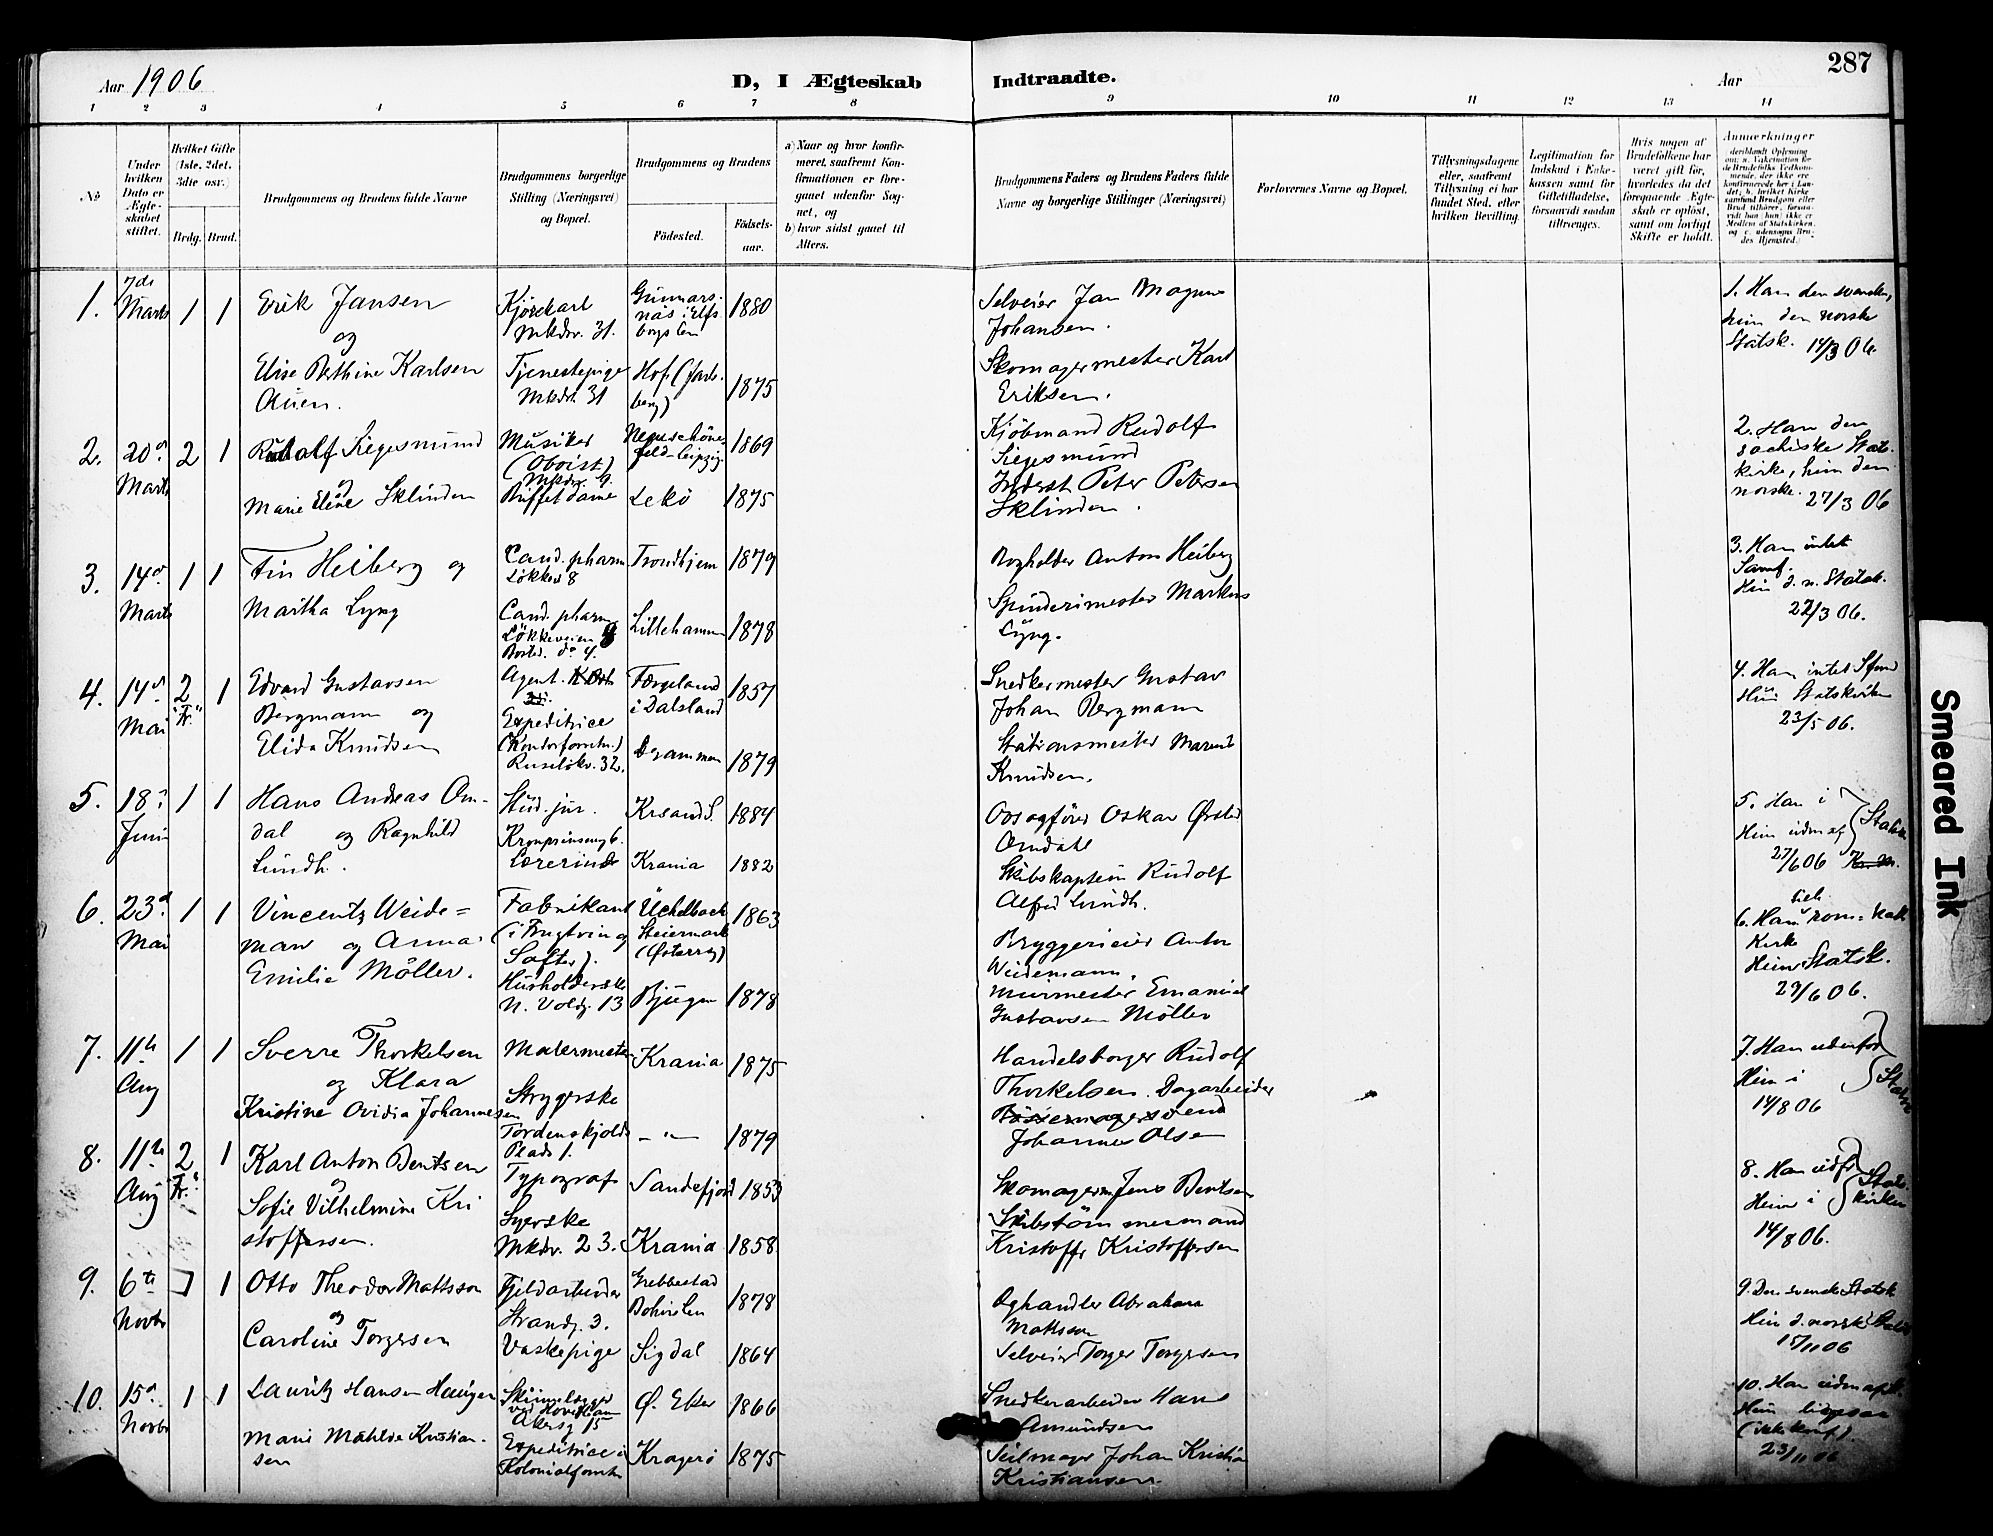 287
Aar 1906
D, I Ægteskab Indtraadte.
Aar
1 2 3 4 5 6 7 8 9 10 11 12 13 14
No
Under hvilken Dato er Ægteskabet stiftet.
Hvilket Gifte (1ste, 2det, 3die osv.)
Brdg. Brud.
Brudgommens og Brudens fulde Navne
Brudgommens borgerlige Stilling (Næringsvei) og Bopæl.
Brudgommens og Brudens
Födested. Födselsaar.
a) Naar og hvor konfirmeret, saafremt Konfirmationen er foregaaet udenfor Sognet, og
b) hvor sidst gaaet til Alters.
Brudgommens Faders og Brudens Faders fulde Navne og borgerlige Stillinger (Næringsvei)
Forlovernes Navne og Bopæl.
Tillysningsdagene eller, saafremt Tillysning ei har fundet Sted, efter hvilken Bevilling.
Legitimation for Indskud i Enkekassen samt for Giftetilladelse, forsaavidt saadan tiltrænges.
Hvis nogen af Brudefolkene har været gift før, hvorledes da det foregaaende Ægteskab er opløst, samt om lovligt Skifte er holdt.
Anmærkninger
1. 7de Marts 1 1
Erik Jansen
og
Elise Bethine Karlsen
Auen.
Kjørekarl
Mkdv. 31.
Tjenestepige
Mkdv. 31
Gunnarsnäs i Elfsborgs Len 1880
Hof (Jarlsberg) 1875
Selveier Jan Magnus
Johansen.
Skomagermester Karl
Eriksen.
1. Han den svenske,
hun den norske
Statsk. 14/3 06.
2. 20de Marts 2 1
Rudolf Siegesmund
og
Marie Eline Sklinden
Musiker
(Oboist)
Buffetdame
Neuschönefeld-Leipzig 1869
Lekö 1875
Kjöbmand Rudolf
Siegesmund
Inderst Peter Petersen
Sklinden.
2. Han den
sachiske Statskirke, hun den
norske. 27/3 06
3. 14de Marts 1 1
Fin Heiberg og
Martha Lyng
Cand. pharm
Løkkev 8
Cand. pharm
Løkkeveien
Trondhjem 1879
Lillehamm 1878
Bogholder Anton Heiberg
Spinderimester Markus
Lyng.
3. Han intet
Samf.
Hun d. n. Statsk.
22/3 06.
4. 14de Mai 2 "Fr." 1
Edvard Gustavsen
Bergmann og
Elida Knudsen
Agent.
Expeditrice
Ruseløkv. 32.
Færgeland
i Dalsland 1857
Drammen 1879
Snedkermester Gustav
Johan Bergmann
Stationsmester
Knudsen.
4. Han intet Sfund
Hun Statskirken
23/5 06.
5. 18de Juni 1 1
Hans Andreas Omdal og Ragnhild
Lundh.
Stud. jur.
Kronprinseng 6.
Lærerinde
Krsand S. 1884
Krania 1882
Ovsagfører Oskar Ørsted
Omdahl
Skibskaptein Rudolf
Alfred Lundh.
5. Han i
Hun udenf } Statsk
27/6 06
6. 23de Mai 1 1
Vincentz Weideman og Anna
Emilie Möller.
Fabrikant
(i Frugtvin og
Safter).
Husholderske
N. Voldg. 13
Üchelbach
Steiermark
(Østerrig) 1863
Bjugn 1878
Bryggerieier Anton
Weidemann.
Murmester Emanuel
Gustavsen Möller
6. Han rom-kath
Kirke
Hun Statsk.
29/6 06.
7. 11te Aug 1 1
Sverre Thorkelsen
og Klara
Kristine Ovidia Johannesen
Malermester
Strygerske
Tordenskjolds
Plads 1.
Krania 1875
— " — 1879
Handelsborger Rudolf
Thorkelsen. Dagarbeider
Johannes Olsen
7. Han udenfor
Hun i } Statsk
14/8 06
8. 11te Aug 2 "Fr." 1
Karl Anton Bentsen
og
Sofie Vilhelmine Kristoffersen.
Typograf
Syerske
Mkdv. 23.
Sandefjord 1853
Krania 1858
Skomagerm Jens Bentsen
Skibstömmermand
Kristoffr Kristoffersen
8. Han udfr
Hun i } Statskirken
14/8 06.
9. 6te Novbr 1 1
Otto Theodor Mattsson
og
Caroline Torgersen
Fjeldarbeider
Strandg. 3.
Vaskepige
Grebbestad
Bohus Len 1878
Sigdal 1864
Abraham
Mattsson
Selveier Torger Torgersen
9. Den svenske Statsk
Hun d. norske Stats
15/11 06
10. 15de Novbr 1 1
Lauritz Hansen Haugen
Marie Mathilde Kristiansen
Skinnelægger
Akersg 15
Expeditrice i
Kolonialforretn
Ø. Eker 1866
Kragerø 1875
Snedkerarbeider Hans
Amundsen
Seilmager Johan Kristian
Kristiansen
10. Han udenf
Hun ligesaa
(ikke konf).
23/11 06
Smeared Ink